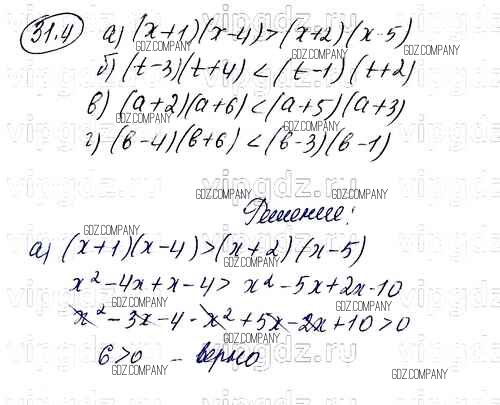 31.4 а) (x+1)(x-4)>(x+2)(x-5)
б) (t-3)(t+4)<(t-1)(t+2)
в) (a+2)(a+6)<(a+5)(a+3)
г) (в-4)(в+6)<(в-3)(в-1)
Решение:
а) (x+1)(x-4)>(x+2)(x-5)
x²-4x+x-4> x²-5x+2x-10
x²-3x-4-x²+5x-2x+10>0
6>0 - верно